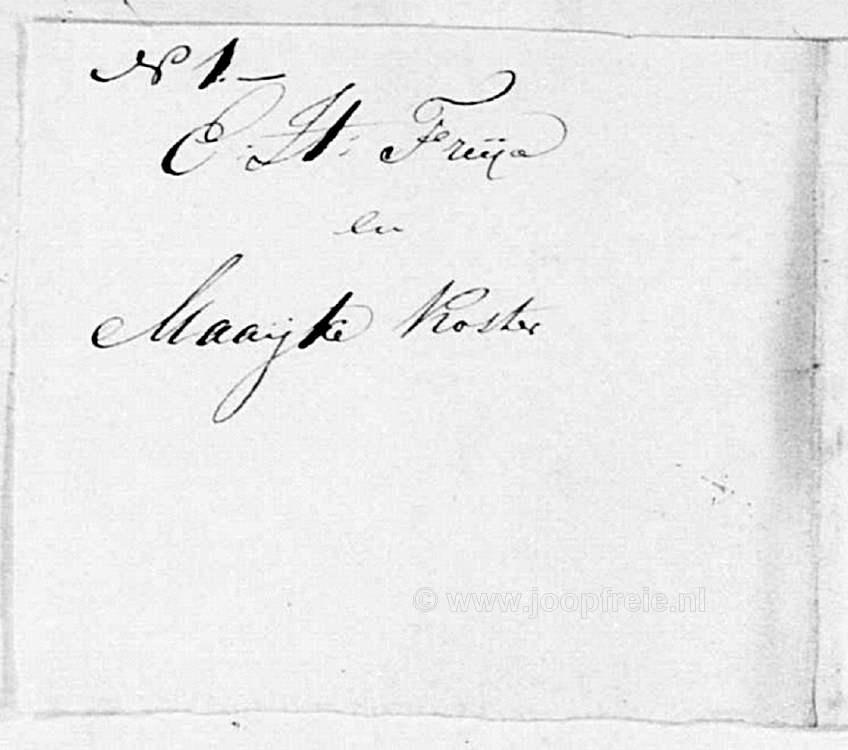 No 1.—
E. Jt: Freija
en
Maaijke Koster
© www.joopfreie.nl